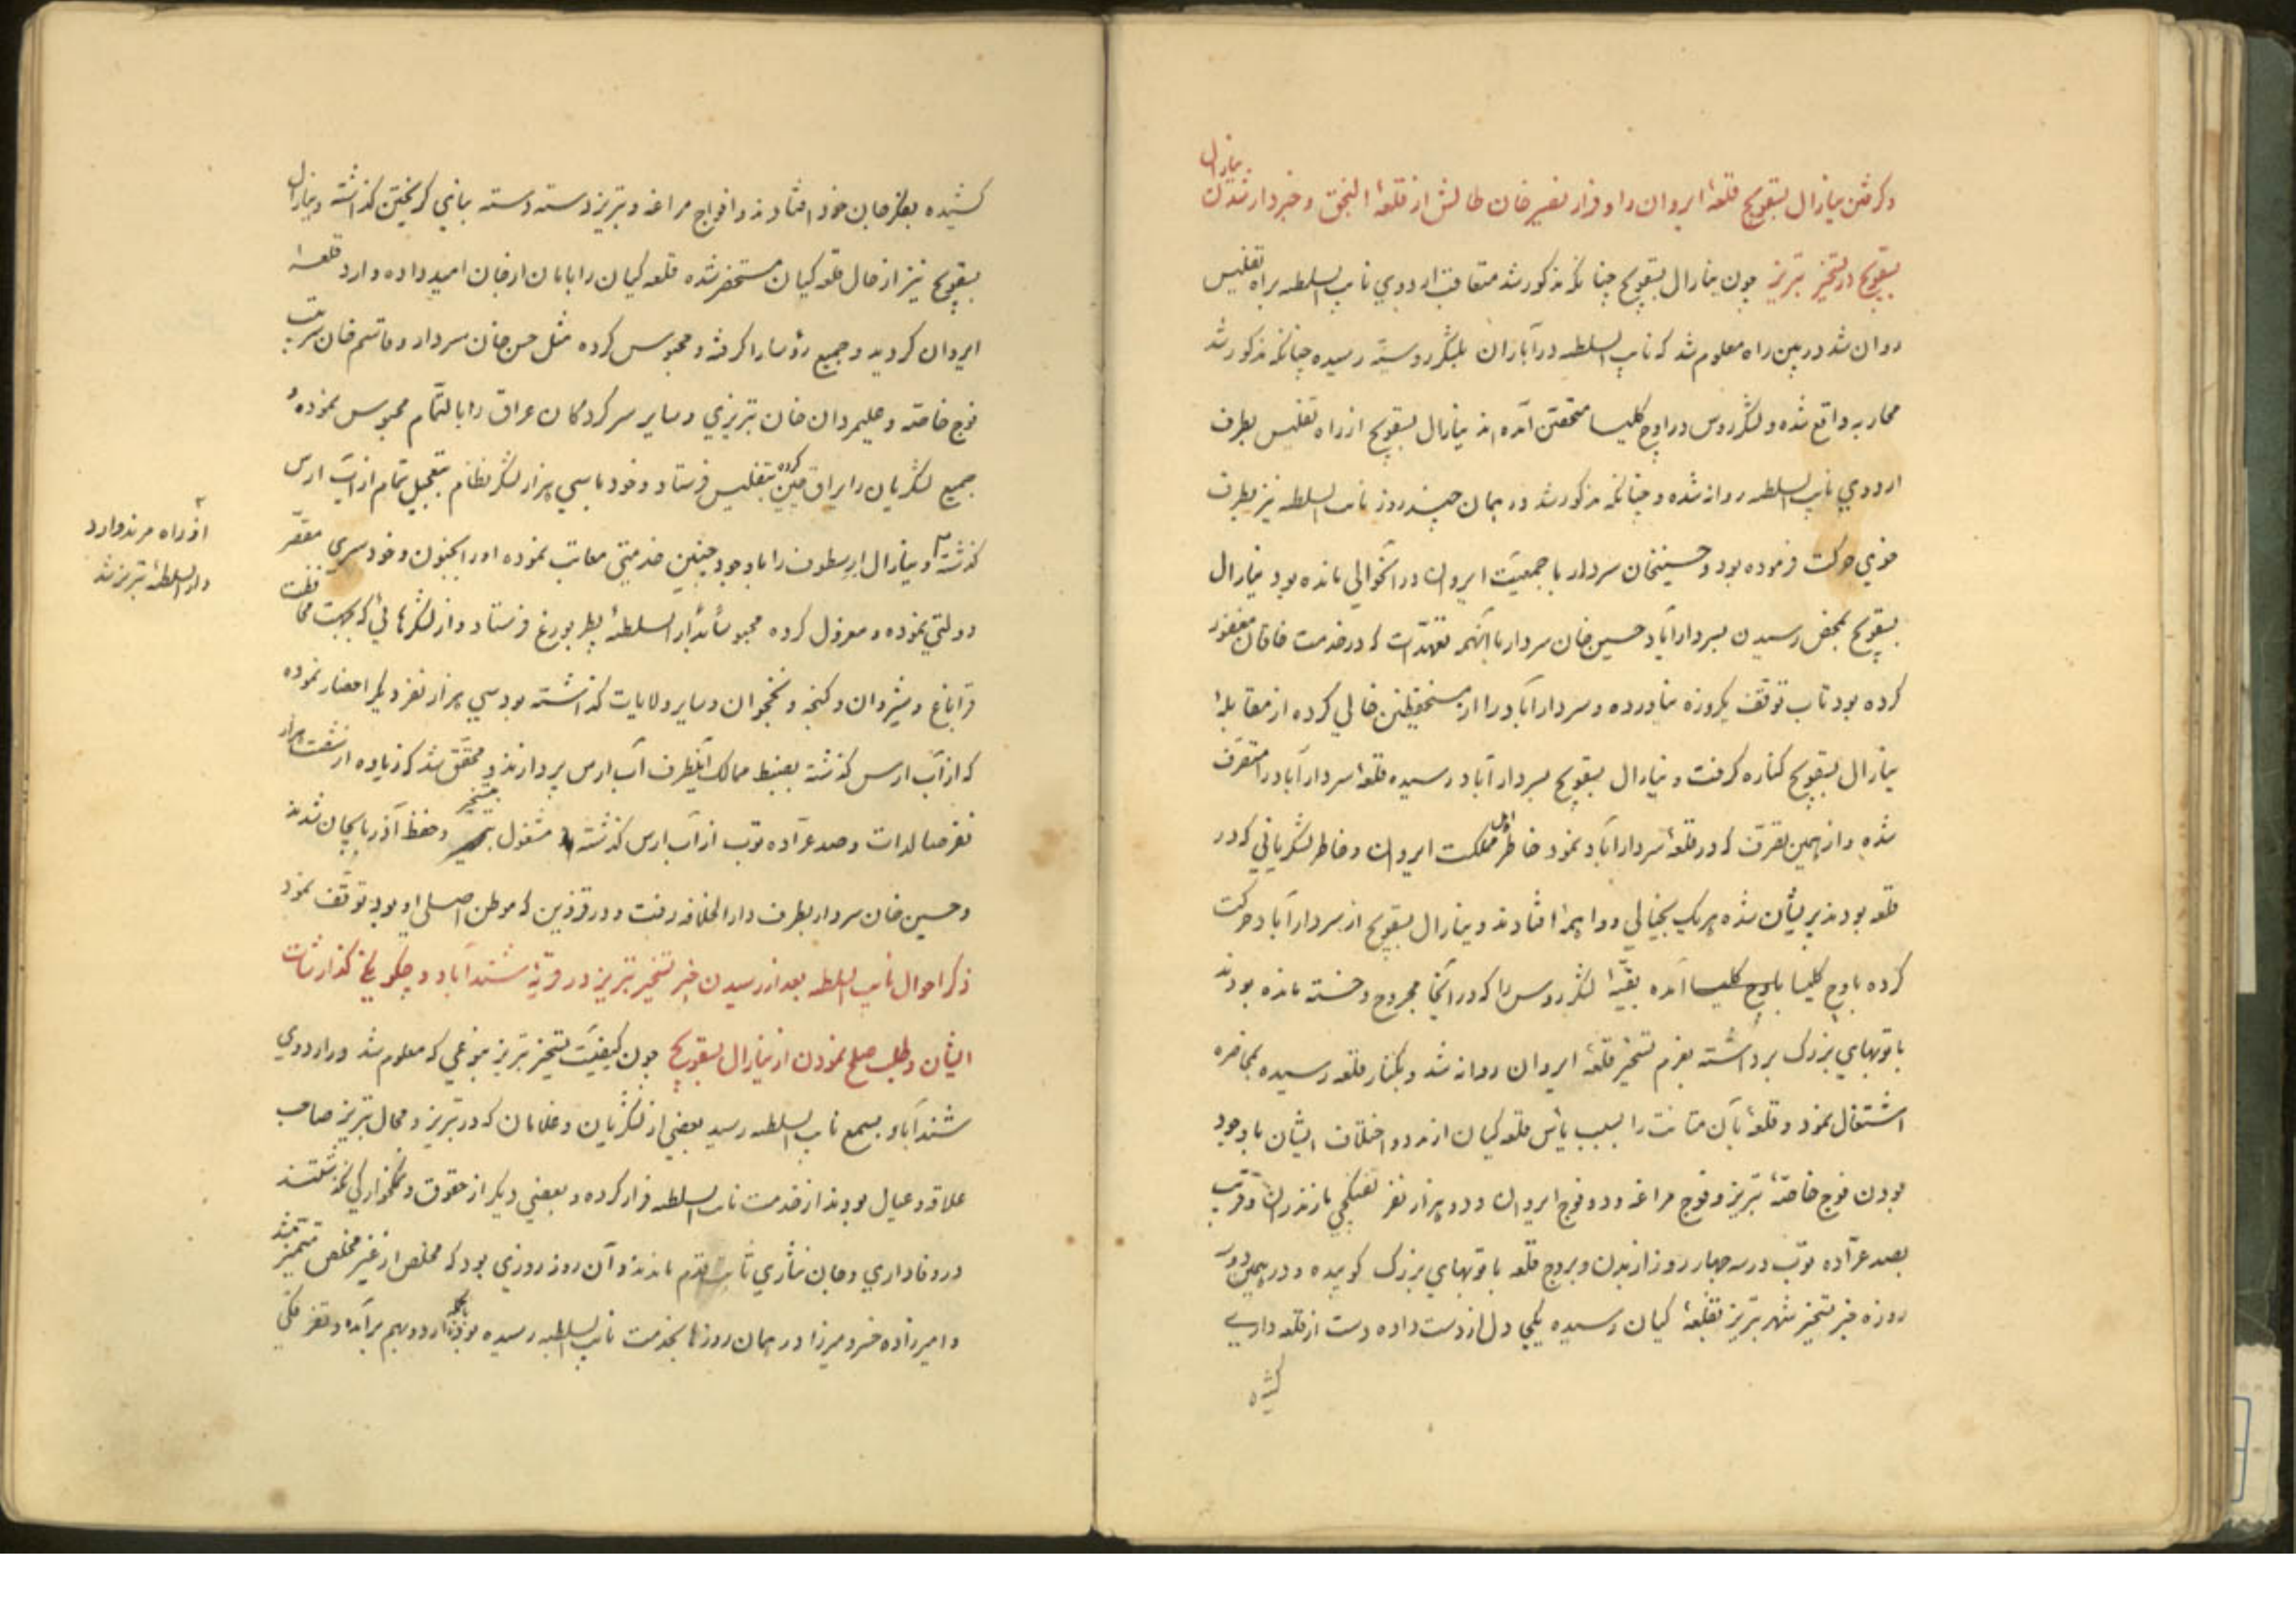 ینارال
و گرفتن ینارال بسقویچ قلعهٔ ایروان را و فرار نصیر خان طالش از قلعهٔ النجق و خبردار شدن
بسقویچ از تسخیر تبریز چون ینارال بسقویچ چنانکه مذکور شد متعاقب اردوی نایب السلطنه براه تفلیس
روان شد در بین راه معلوم شد که نایب السلطنه در آباران بلشکر روسیّه رسیده چنانکه مذکور شد
محاربه واقع شده و لشکر روس در اوچ کلیسا متحصّن آمده‌اند ینارال بسقویچ از راه تفلیس بطرف
اردوی نایب السلطنه روانه شده و چنانکه مذکور شد در همان چند روز نایب السلطنه نیز بطرف
خوی حرکت فرموده بود و حسینخان سردار با جمعیّت ایروان در آنحوالی مانده بود ینارال
بسقویچ بمحض رسیدن بسردارآباد حسین خان سردار با آنهمه تعهّدات که در خدمت خاقان مغفور
کرده بود تاب توقّف یکروزه نیاورده و سردارآباد را از مستحفظین خالی کرده از مقابلهٔ
ینارال بسقویچ کناره گرفت و ینارال بسقویچ بسردارآباد رسیده قلعهٔ سردارآباد را متصرّف
شده و از همین تصرّف که در قلعهٔ سردارآباد نمود خاطر اهل مملکت ایروان و خاطر لشکریانی که در
قلعه بودند پریشان شده هر یک بخیالی و واهمهٔ افتادند و ینارال بسقویچ از سردارآباد حرکت
کرده باوچ کلیسا باوچ کلیسا آمده بقیّهٔ لشکر روس را که در آنجا مجروح و خسته مانده بودند
با توبهای بزرک برداشته بعزم تسخیر قلعهٔ ایروان روانه شد و بکنار قلعه رسیده بمحاصره
اشتغال نمود و قلعهٔ بآن متانت را بسبب یأس قلعه کیان از مدد و اختلاف ایشان با وجود
بودن فوج خاصّهٔ تبریز و فوج مراغه و دو فوج ایروان و دو هزار نفر تفنکچی مازندران و قریب
بصد عرّاده توب در سه چهار روز از بدن و بروج قلعه با توبهای بزرک کوبیده و در همین دو سه
روزه خبر تسخیر شهر تبریز بقلعهٔ کیان رسیده یکجا دل از دست داده دست از قلعه داری
کشیده
کشیده بفکر جان خود افتادند و افواج مراغه و تبریز دسته دسته بنای کریختن کذاشته و ینارال
بسقویچ نیز از حال قلعه کیان مستحضر شده قلعه کیان را بامان از جان امید داده وارد قلعهٔ
ایروان کردید و جمیع رؤسا را کرفته و محبوس کرده مثل حسن خان سردار و قاسم خان سرتیپ
فوج خاصّه و علیمردان خان تبریزی و سایر سرکردکان عراق را بالتّمام محبوس نموده و
جمیع لشکریان را یراق چین کرده بتفلیس فرستاد و خود با سی هزار لشکر نظام بتعجیل تمام از آب ارس
کذشته و ینارال ارسطوف را با وجود چنین خدمتی معاتب نموده او را بجنون و خودسری مقصّر
از راه مرند وارد
دار السلطنهٔ تبریز شد
دولتی نموده و معزول کرده محبوساً بدار السلطنهٔ پطربورغ فرستاد و از لشکرهائی که بجهت محافظت
قراباغ و شیروان و کنجه و نخجوان و سایر ولایات کذاشته بود سی هزار نفر دیکر احضار نموده
که از آب ارس کذشته بضبط ممالک آنطرف آب ارس پردازند و محقّق شد که زیاده از شصت هزار
نفر صالدات و صد عرّاده توب از آب ارس کذشته مشغول بتسخیر و حفظ آذربایجان شدند
و حسین خان سردار بطرف دار الخلافه رفت و در قزوین که موطن اصلی او بود توقّف نمود
ذکر احوال نایب السلطنه بعد از رسیدن خبر تسخیر تبریز در قریهٔ شندآباد و چکونکی کذارشات
ایشان و طلب صلح نمودن از ینارال بسقویچ چون کیفیّت تسخیر تبریز بنوعی که معلوم شد در اردوی
شندآباد بسمع نایب السلطنه رسید بعضی از لشکریان و غلامان که در تبریز و محال تبریز صاحب
علاقه و عیال بودند از خدمت نایب السلطنه فرار کرده و بعضی دیکر از حقوق و نمکخوارکی نکذشتند
در وفاداری و جان نثاری ثابت قدم ماندند و آن روز روزی بود که مخلص از غیر مخلص متمیّز شد
و امیرزاده خسرو میرزا در همان روزها بخدمت نایب السلطنه رسیده بودند اردو بهم برآمده و تفرقکی